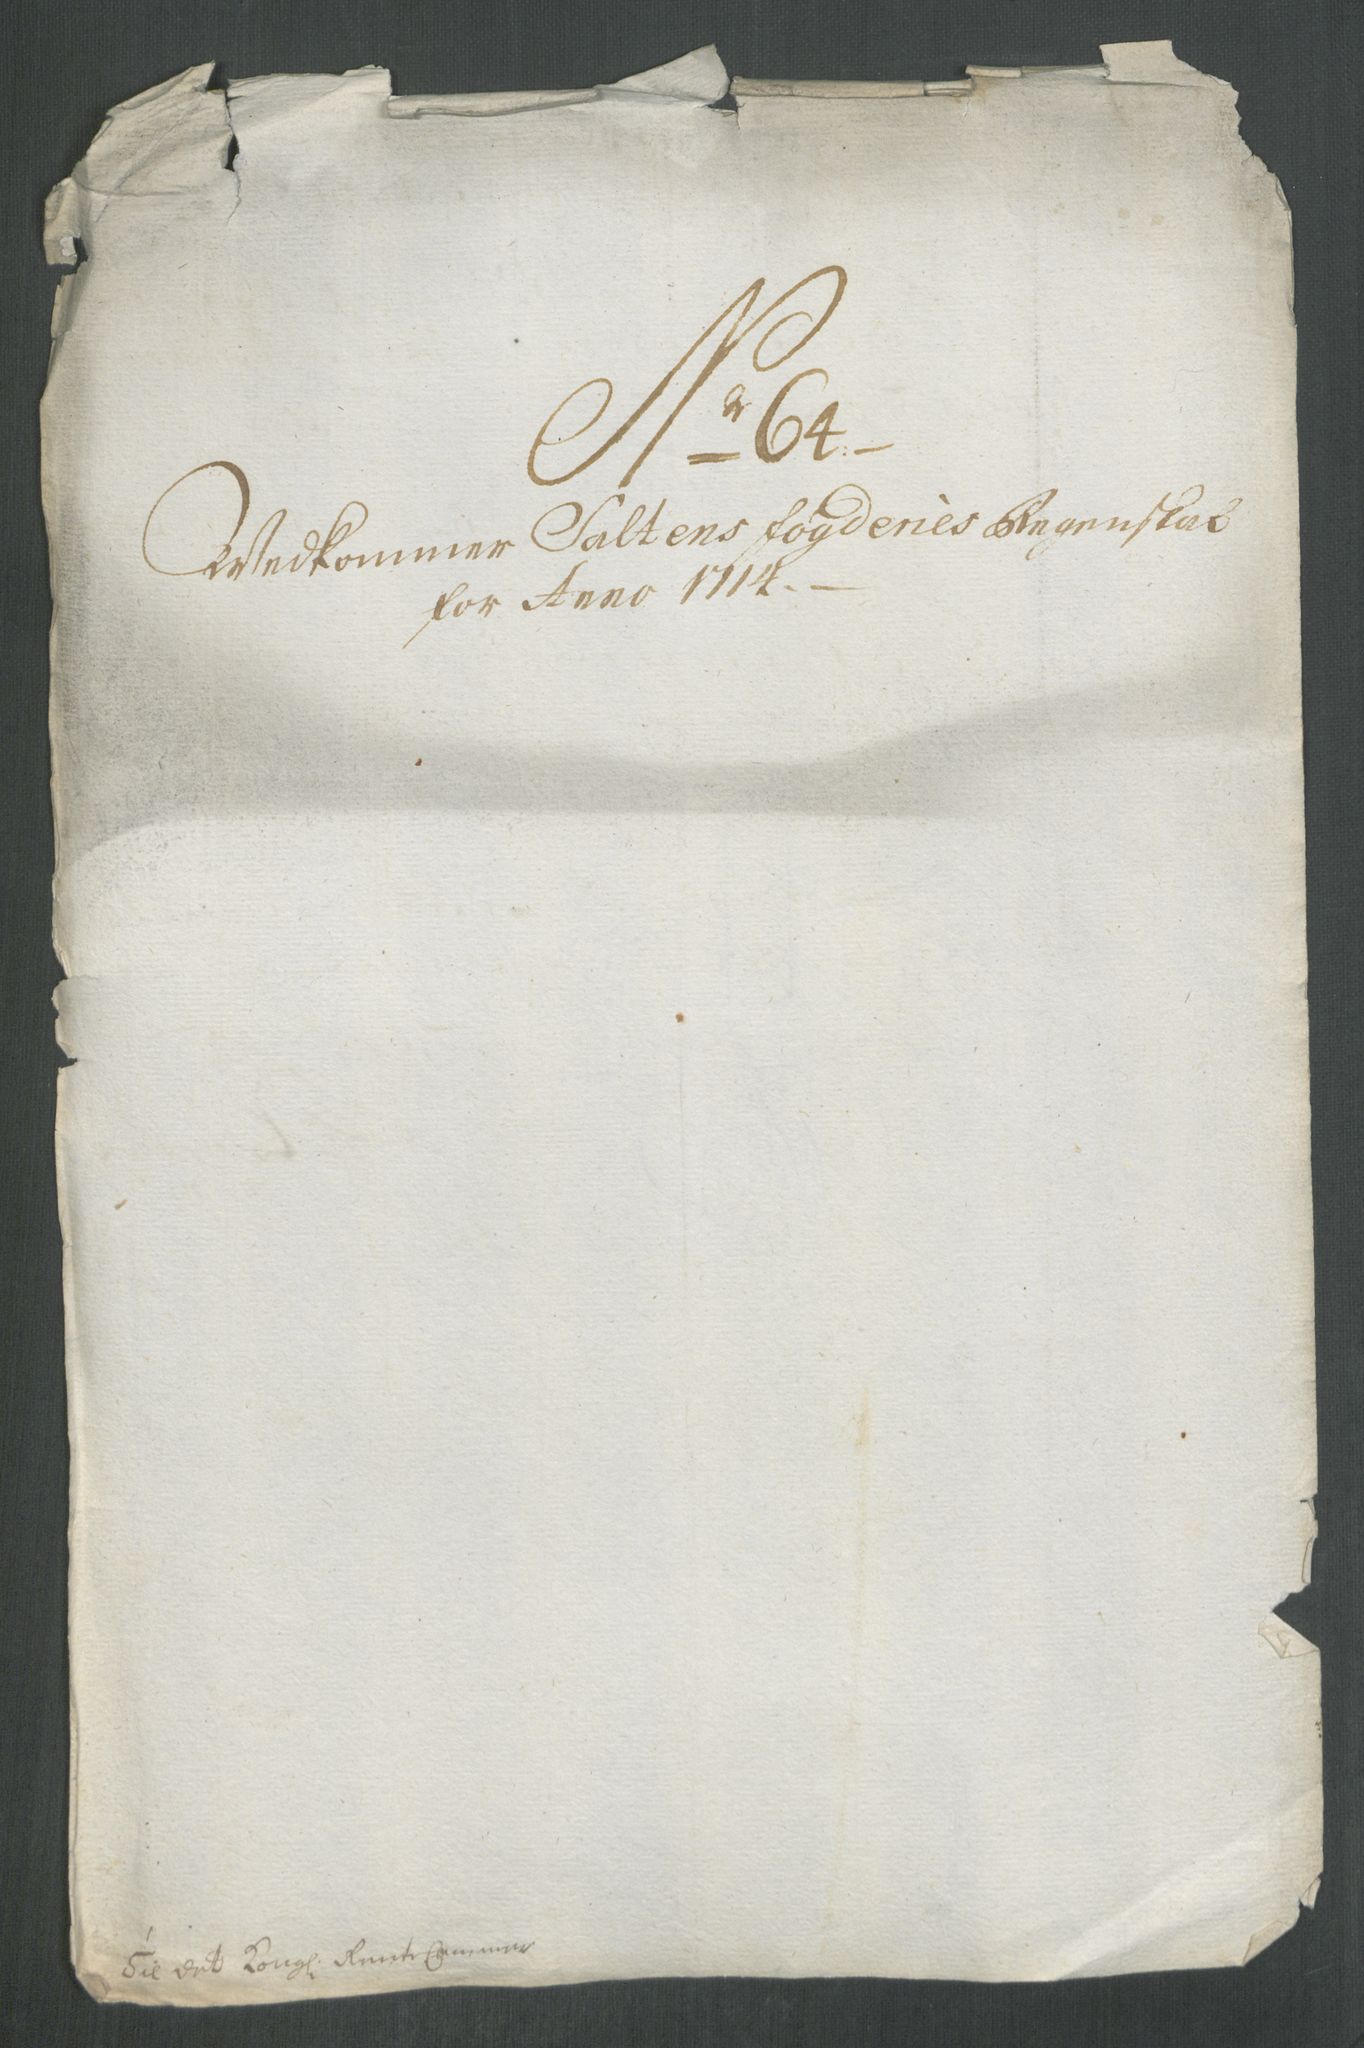 No 64.
Vedkommer Saltens fogderies Regenskab
for Anno 1714.
Til det Kongl: Rente Cammer